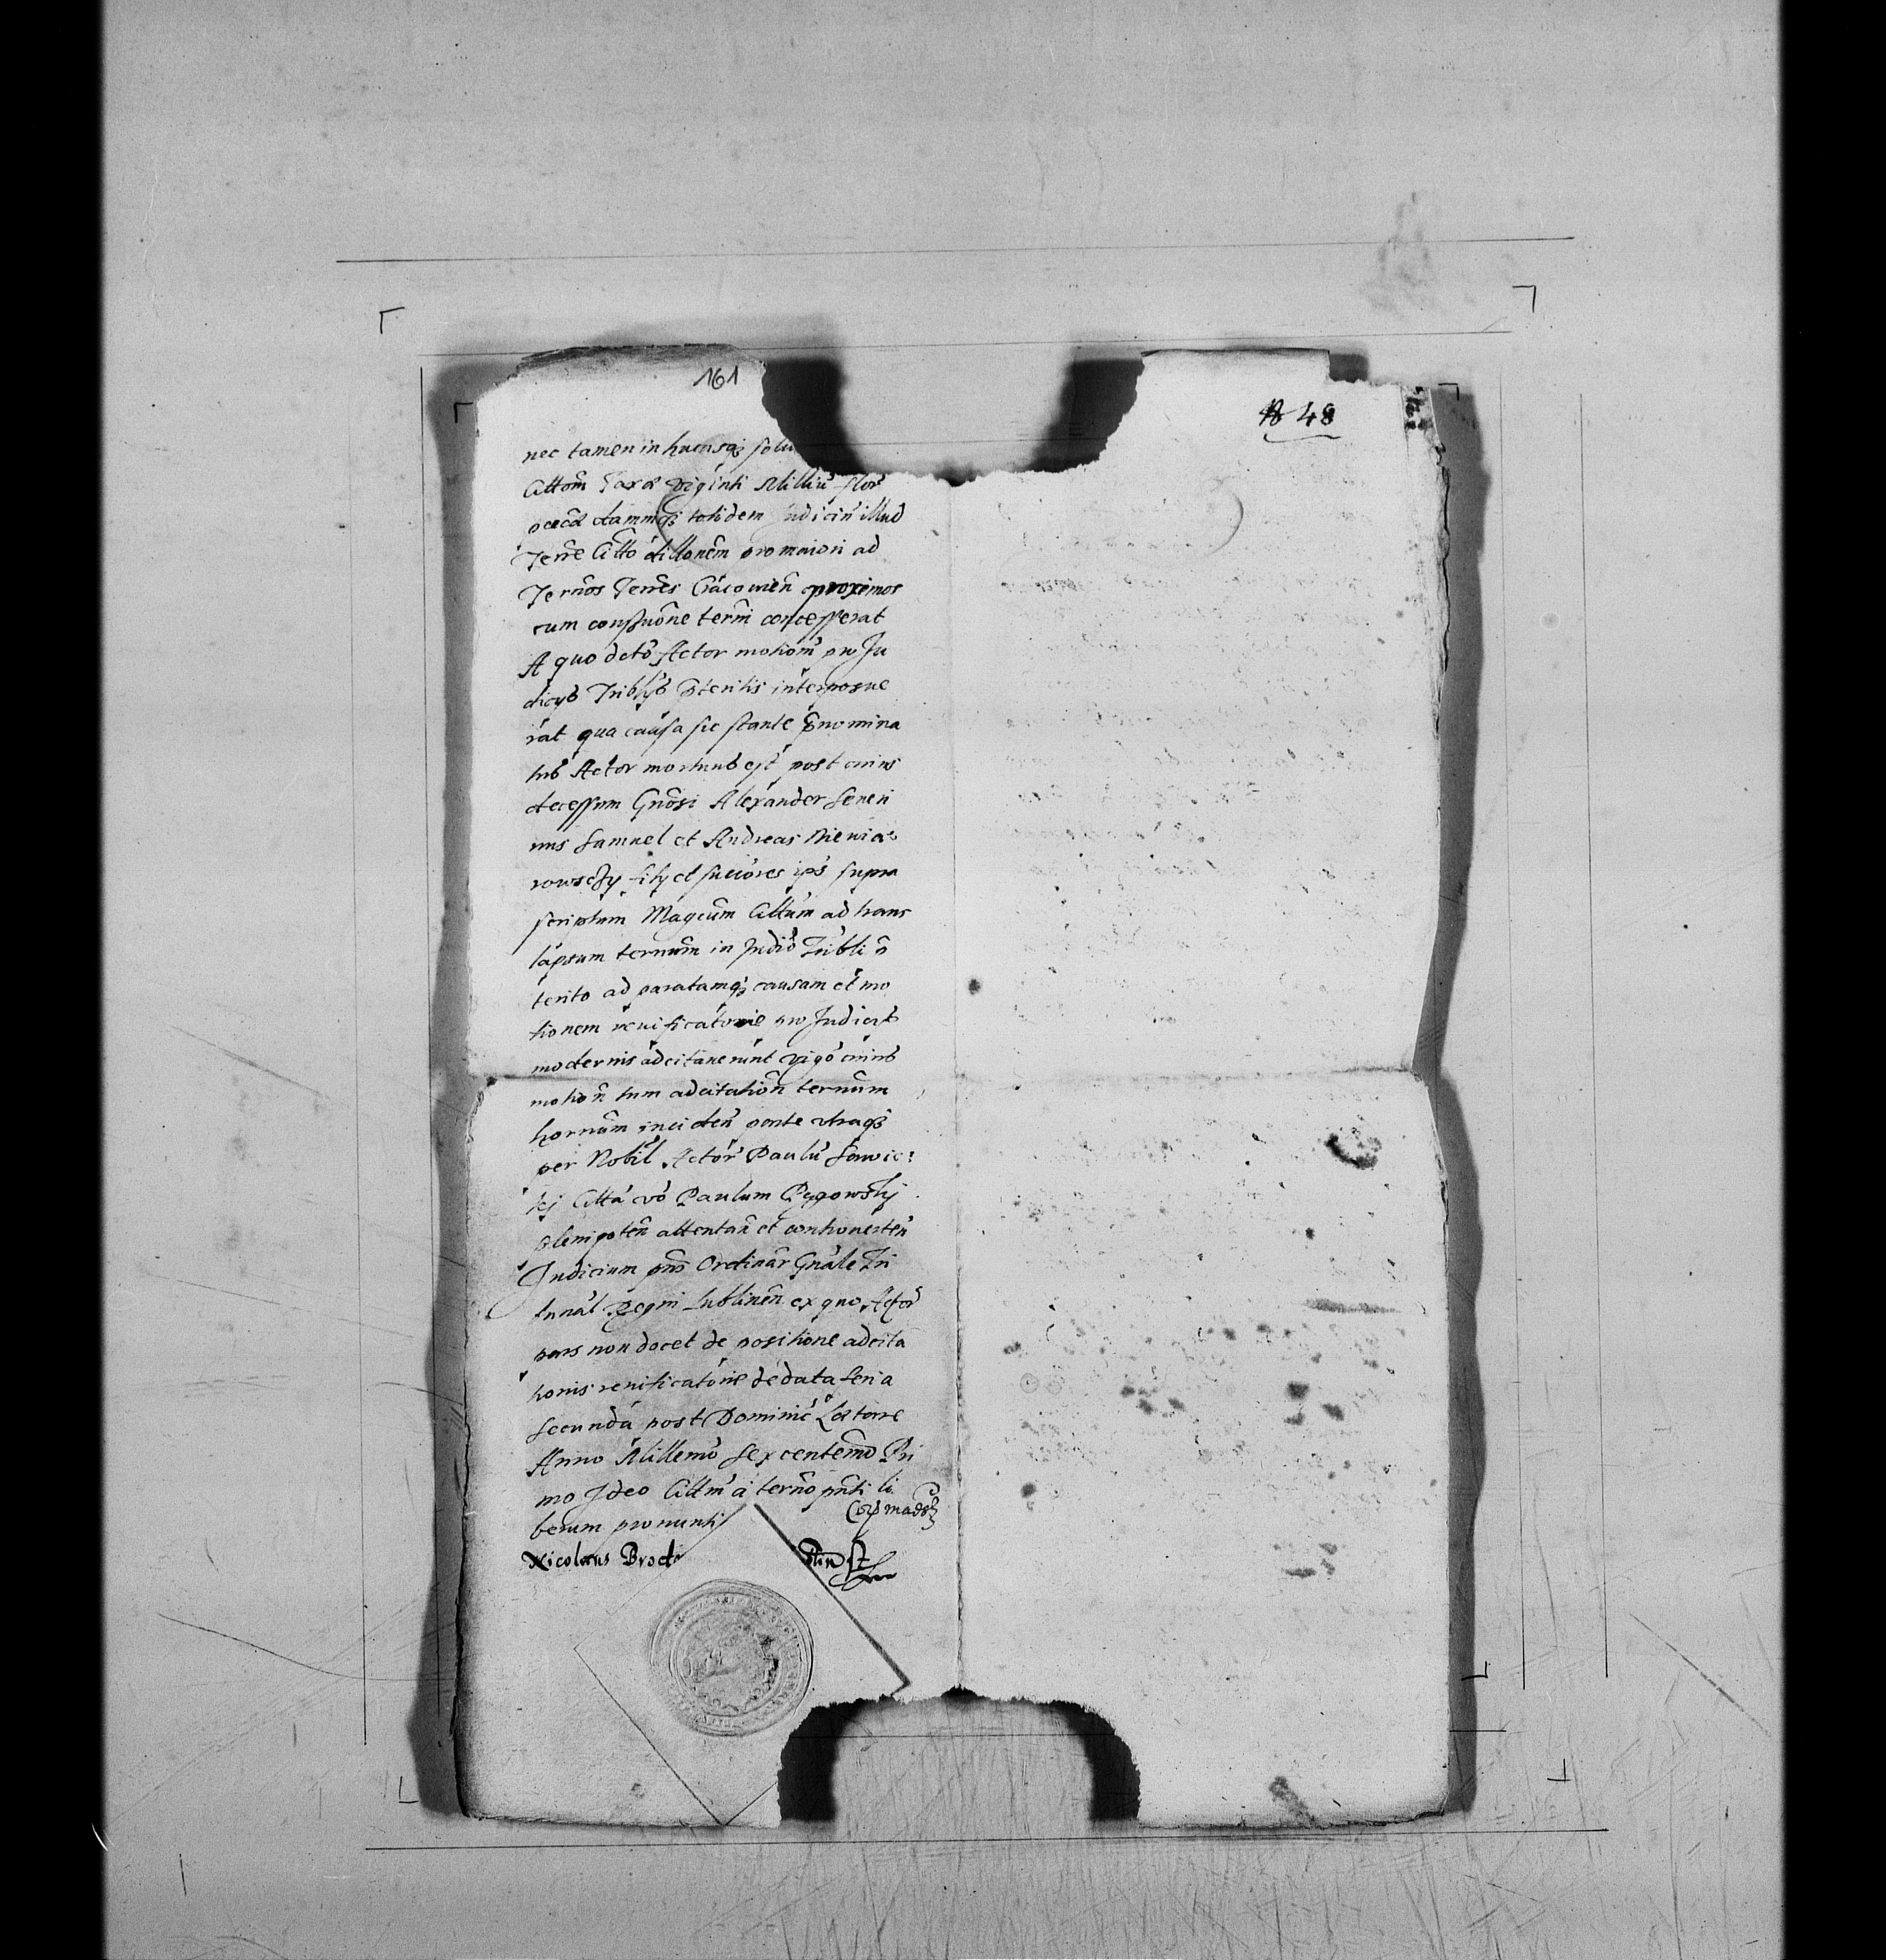 161
48
nec tamen in hucusq solu
Cittom Taxa viginti Milliu flor
pccā damniq totidem Judiciu illud
Terre Citto dillonem pro maiori ad
Termos Terres Cracovien proximos
cum consuone termi concesserat
A quo decto Actor motiom pro Ju
dicys Triblyb pteritis interposue
rat qua causa sic stante pnomina
tus Actor mortuus est post cuius
decessum Gnosi Alexander Seueri
nus Samuel et Andreas Mienia
rowscÿ filÿ et succores ips supra
scriptum Magcum Cittum ad trans
lapsum termum in Judio Tribli p
terito ad paratamq causam et mo
tionem reuificatorie pro Judicÿs
modernis adcitauerunt vigo cuius
motion tum adcitation termum
hornum inciden parte vtraq
per Nobil Actor Paulu Sawic
kj Citta vo Paulum Pągowskj
plenipoten attentan et conhonesten
Judicium pns Ordinar Gnale Tri
bunal Regni Lublinen ex quo Actor
pars non docet de positione adcita
tionis reuificatorie de data feria
secunda post Dominic Lætare
Anno Millemo Sexcentemo Pri
mo Ideo Cittm a termo pnti li
berum pronunti
Nicolaus